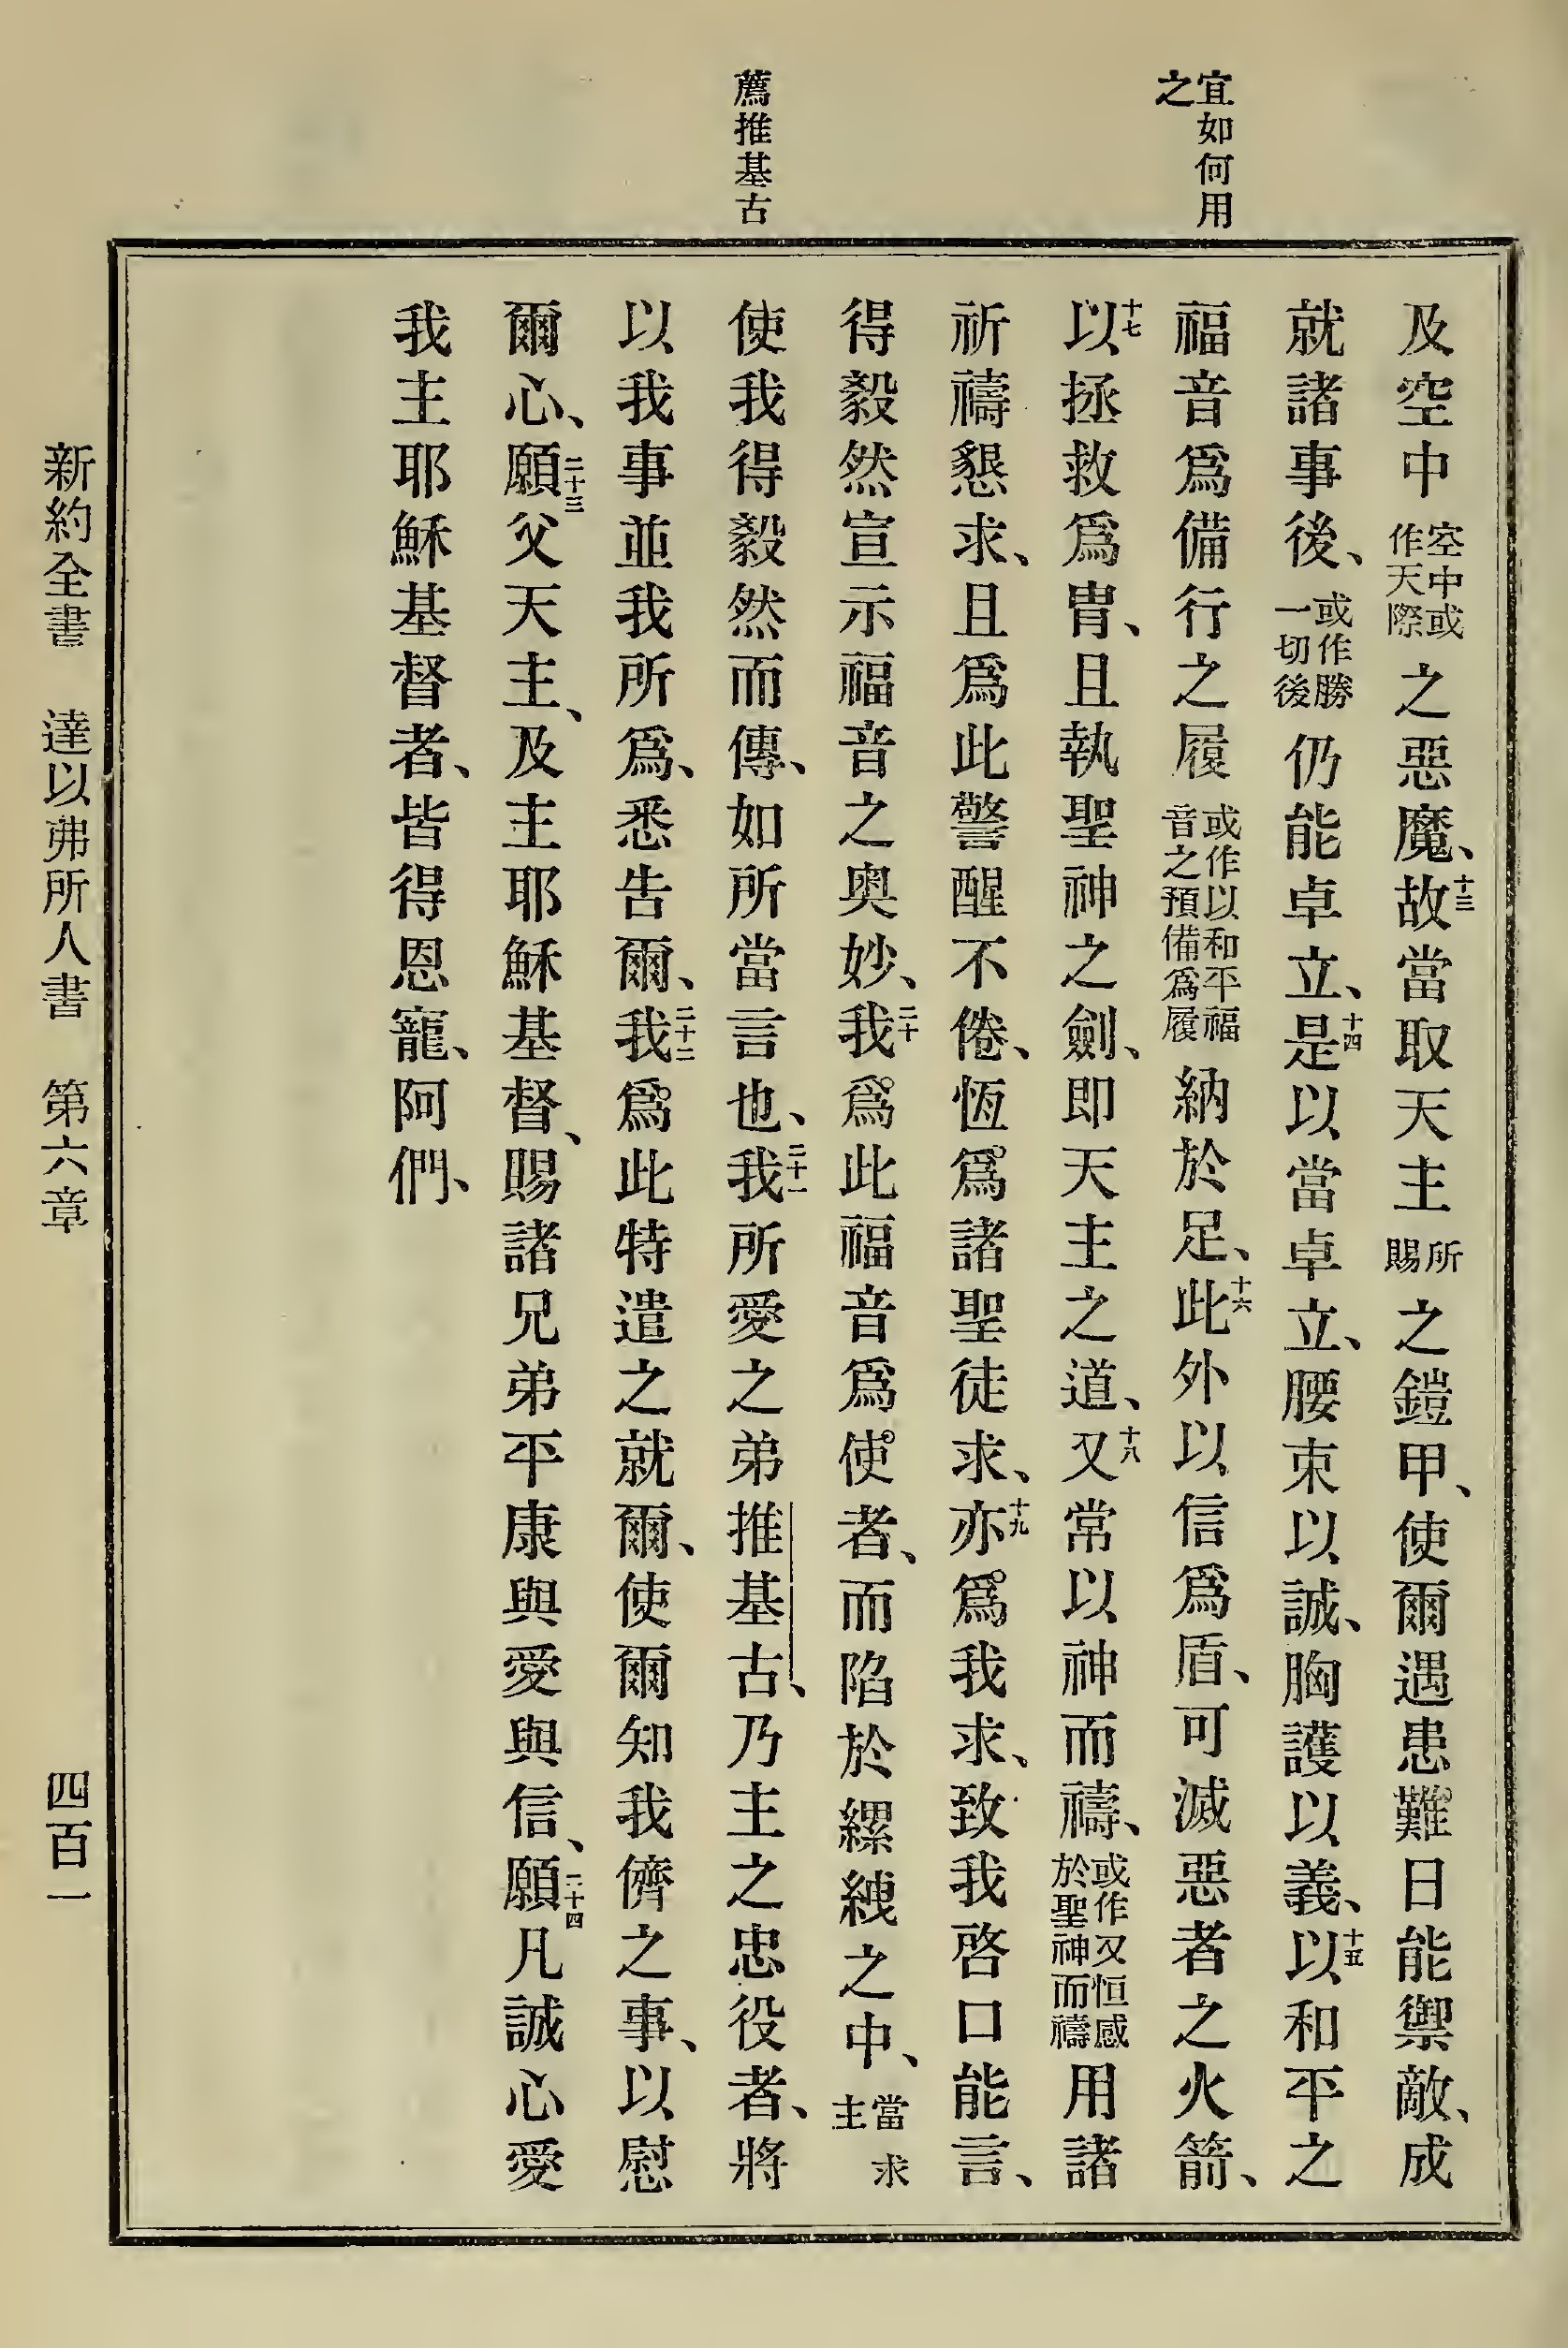 宜如何用
之
薦推基古
及空中空中或作天際之惡魔、十三故當取天主所賜之鎧甲、使爾遇患難日能禦敵、成
就諸事後、或作勝一切後仍能卓立、十四是以當卓立、腰束以誠、胸護以義、十五以和平之
福音爲備行之履或作以和平福音之預備爲履納於足、十六此外以信爲盾、可滅惡者之火箭、
十七以拯救爲冑、且執聖神之劍、即天主之道、十八又常以神而禱、或作又恒感於聖神而禱用諸
祈禱懇求、且爲此警醒不倦、恆爲諸聖徒求、十九亦爲我求、致我啓口能言、
得毅然宣示福音之奧妙、二十我爲此福音爲使者、而陷於縲絏之中、當求主
使我得毅然而傳、如所當言也、二十一我所愛之弟推基古、乃主之忠役者、將
以我事並我所爲、悉告爾、二十二我爲此特遣之就爾、使爾知我儕之事、以慰
爾心、二十三願父天主、及主耶穌基督、賜諸兄弟平康與愛與信、二十四願凡誠心愛
我主耶穌基督者、皆得恩寵、阿們、
新約全書 達以弗所人書 第六章 四百一